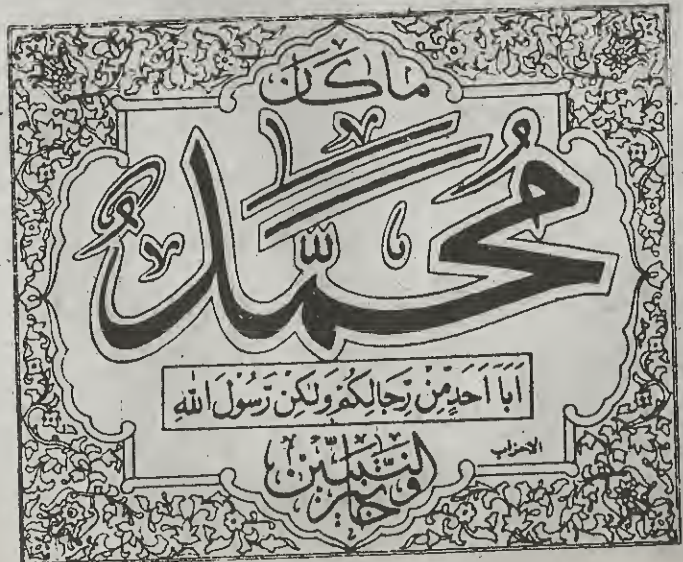 ما كان
محمدٌ
اَبَآ اَحَدٍ مِّنْ رِّجَالِكُمْ وَلٰكِنْ رَّسُوْلَ اللّٰهِ
الاحزاب
وخاتم النبيّن